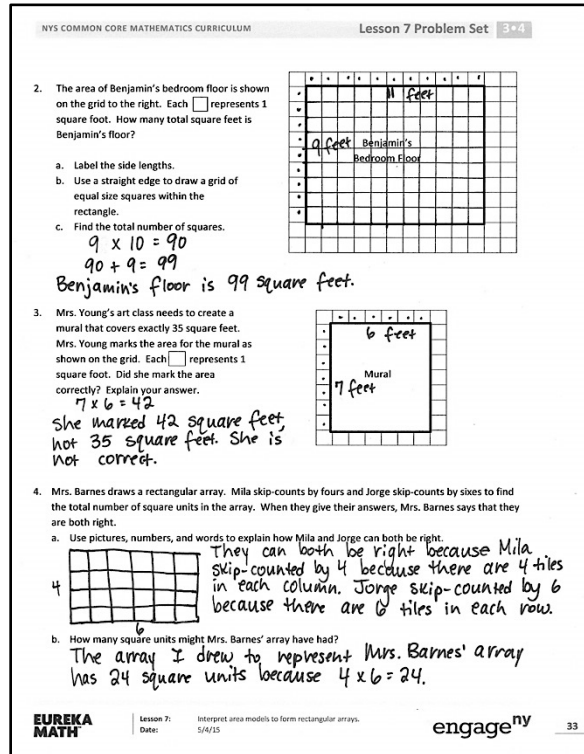 NYS COMMON CORE MATHEMATICS CURRICULUM
Lesson 7 Problem Set 3•4
2. The area of Benjamin's bedroom floor is shown
on the grid to the right. Each □ represents 1
square foot. How many total square feet is
Benjamin's floor?
a. Label the side lengths.
b. Use a straight edge to draw a grid of
equal size squares within the
rectangle.
c. Find the total number of squares.
9 x 10 = 90
90 + 9 = 99
Benjamin's floor is 99 square feet.
11 feet
9 feet
Benjamin's
Bedroom Floor
3. Mrs. Young's art class needs to create a
mural that covers exactly 35 square feet.
Mrs. Young marks the area for the mural as
shown on the grid. Each □ represents 1
square foot. Did she mark the area
correctly? Explain your answer.
7 x 6 = 42
She marked 42 square feet,
not 35 square feet. She is
not correct.
6 feet
Mural
7 feet
4. Mrs. Barnes draws a rectangular array. Mila skip-counts by fours and Jorge skip-counts by sixes to find
the total number of square units in the array. When they give their answers, Mrs. Barnes says that they
are both right.
a. Use pictures, numbers, and words to explain how Mila and Jorge can both be right.
4
6
They can both be right because Mila
skip-counted by 4 because there are 4 tiles
in each column. Jorge skip-counted by 6
because there are 6 tiles in each row.
b. How many square units might Mrs. Barnes' array have had?
The array I drew to represent Mrs. Barnes' array
has 24 square units because 4 x 6 = 24.
EUREKA
MATH™
Lesson 7: Interpret area models to form rectangular arrays.
Date: 5/4/15
engageny
33